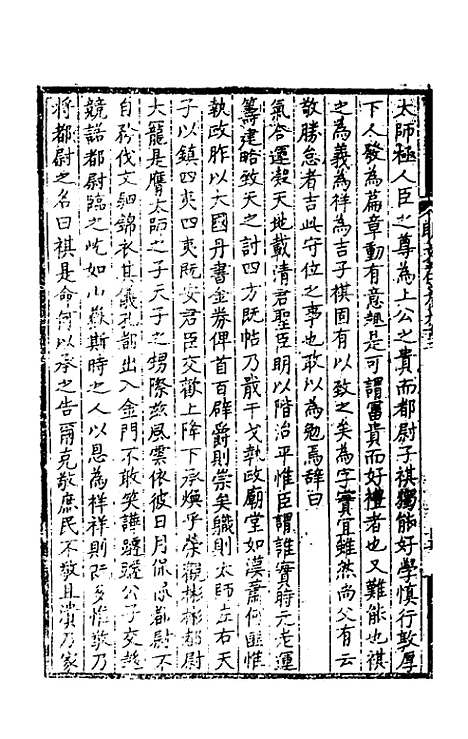 太師極人臣之尊為上公之貴而都尉子祺獨能好學慎行敦厚
下人發為篇章動有意趣是可謂富貴而好禮者也又難能也祺
之為義為祥為吉子祺固有以致之矣為字實宜雖然尚父有云
敬勝怠者吉此守位之事也敢以為勉焉辭曰
氣合運穀天地載清君聖臣明以階治平惟臣謂誰實時元老運
籌建略致天之討四方既帖乃戢干戈執政廟堂如漢蕭何匪惟
執政胙以大國丹書金券俾首百辟爵則崇矣職則太師左右天
子以鎮四夷四夷既安君臣交歡上降下承煥乎榮觀彬彬都尉
大寵是膺太師之子天子之甥際茲風雲依彼日月保都尉不
自矜伐文駟錦衣其儀孔都出入金門不敢笑譁蹮蹮公子交趨
競諾都尉臨之屹如山嶽斯時之人以恩為祥祥則多惟敬乃
將都尉之名曰祺是命何以承之告爾克敬庶民不敬且潰乃家